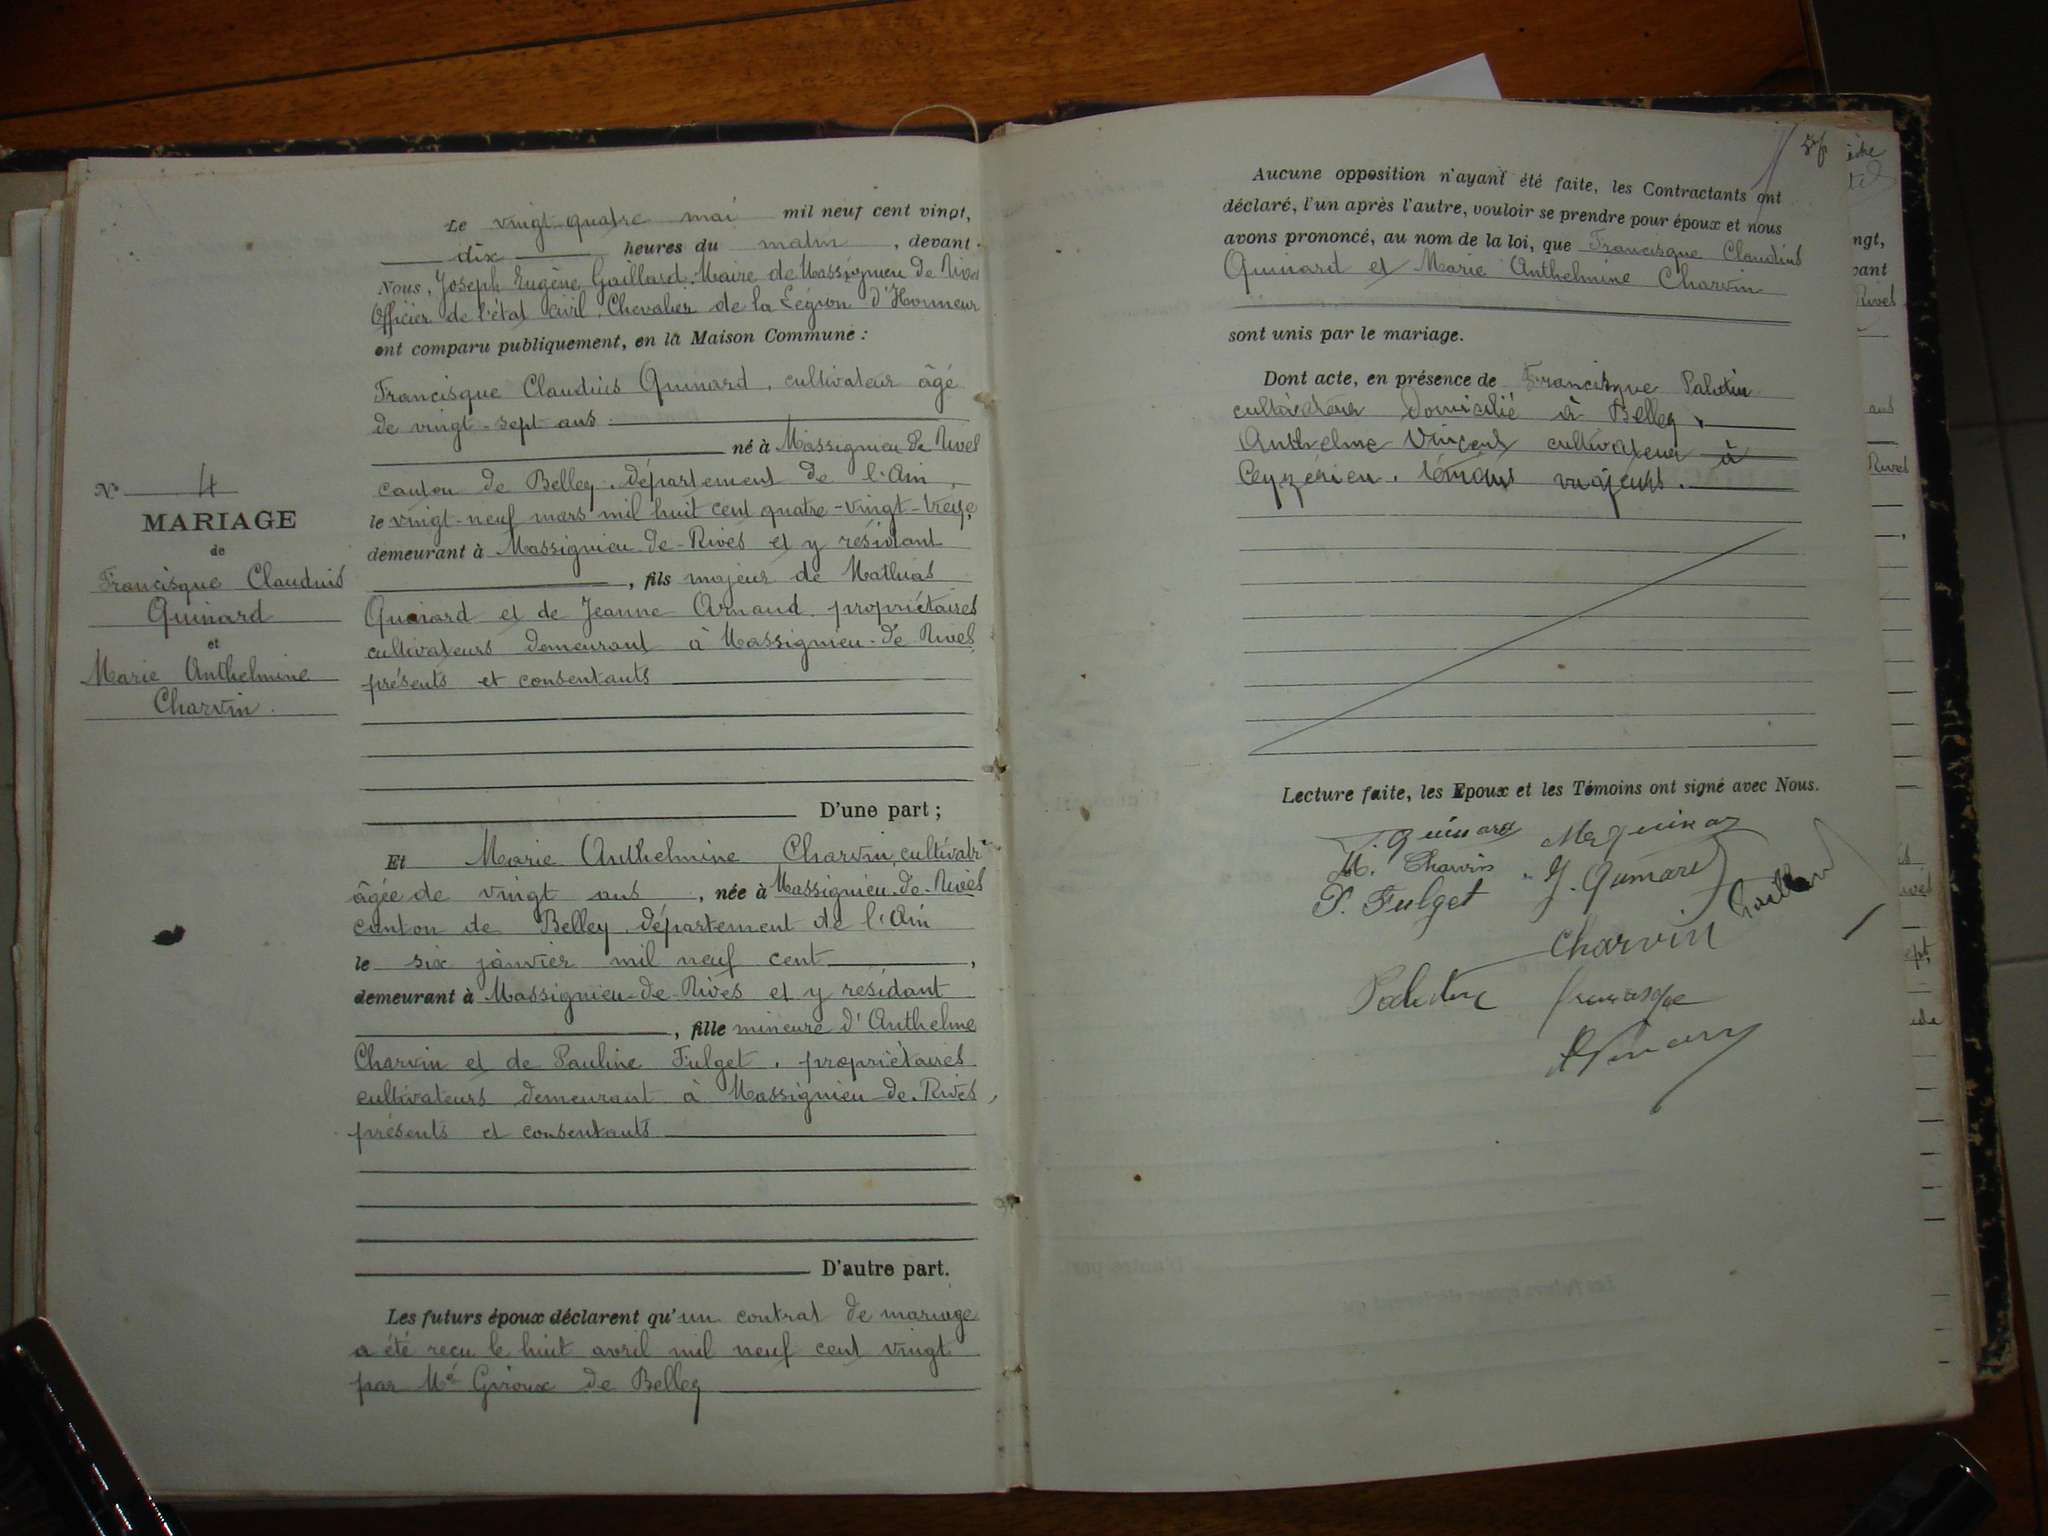 Le vingt quatre mai mil neuf cent vingt,
dix heures du matin, devant
Nous, Joseph Eugène Gaillard, Maire de Massignieu de Rives
Officier de l'état civil, Chevalier de la Légion d'Honneur
ont comparu publiquement, en la Maison Commune :
Francisque Claudius Quinard, cultivateur âgé
de vingt-sept ans
né à Massignieu de Rives
canton de Belley, département de l'Ain,
le vingt-neuf mars mil huit cent quatre-vingt-treize,
demeurant à Massignieu-de-Rives et y résidant
, fils majeur de Mathias
Quinard et de Jeanne Arnaud, propriétaires
cultivateurs demeurant à Massignieu-de Rives
présents et consentants
D'une part ;
N° 4
MARIAGE
de
Francisque Claudius
Quinard
et
Marie Anthelmine
Charvin.
Et Marie Anthelmine Charvin, cultivatr
âgée de vingt ans, née à Massignieu-de-Rives
canton de Belley, département de l'Ain
le six janvier mil neuf cent,
demeurant à Massignieu-de-Rives et y résidant
, fille mineure d'Anthelme
Charvin et de Pauline Fulget, propriétaires
cultivateurs demeurant à Massignieu-de-Rives,
présents et consentants
D'autre part.
Les futurs époux déclarent qu'un contrat de mariage
a été reçu le huit avril mil neuf cent vingt
par Me Giroux de Belley
Aucune opposition n'ayant été faite, les Contractants ont
déclaré, l'un après l'autre, vouloir se prendre pour époux et nous
avons prononcé, au nom de la loi, que Francisque Claudius
Quinard et Marie Anthelmine Charvin
sont unis par le mariage.
Dont acte, en présence de Francisque Paludin
cultivateur domicilié à Belley,
Anthelme Vincent cultivateur à
Ceyzérieu, témoins majeurs.
Lecture faite, les Epoux et les Témoins ont signé avec Nous.
F. Quinard
M. Charvin J. Quinard
P. Fulget Gaillard
Charvin
Francisque